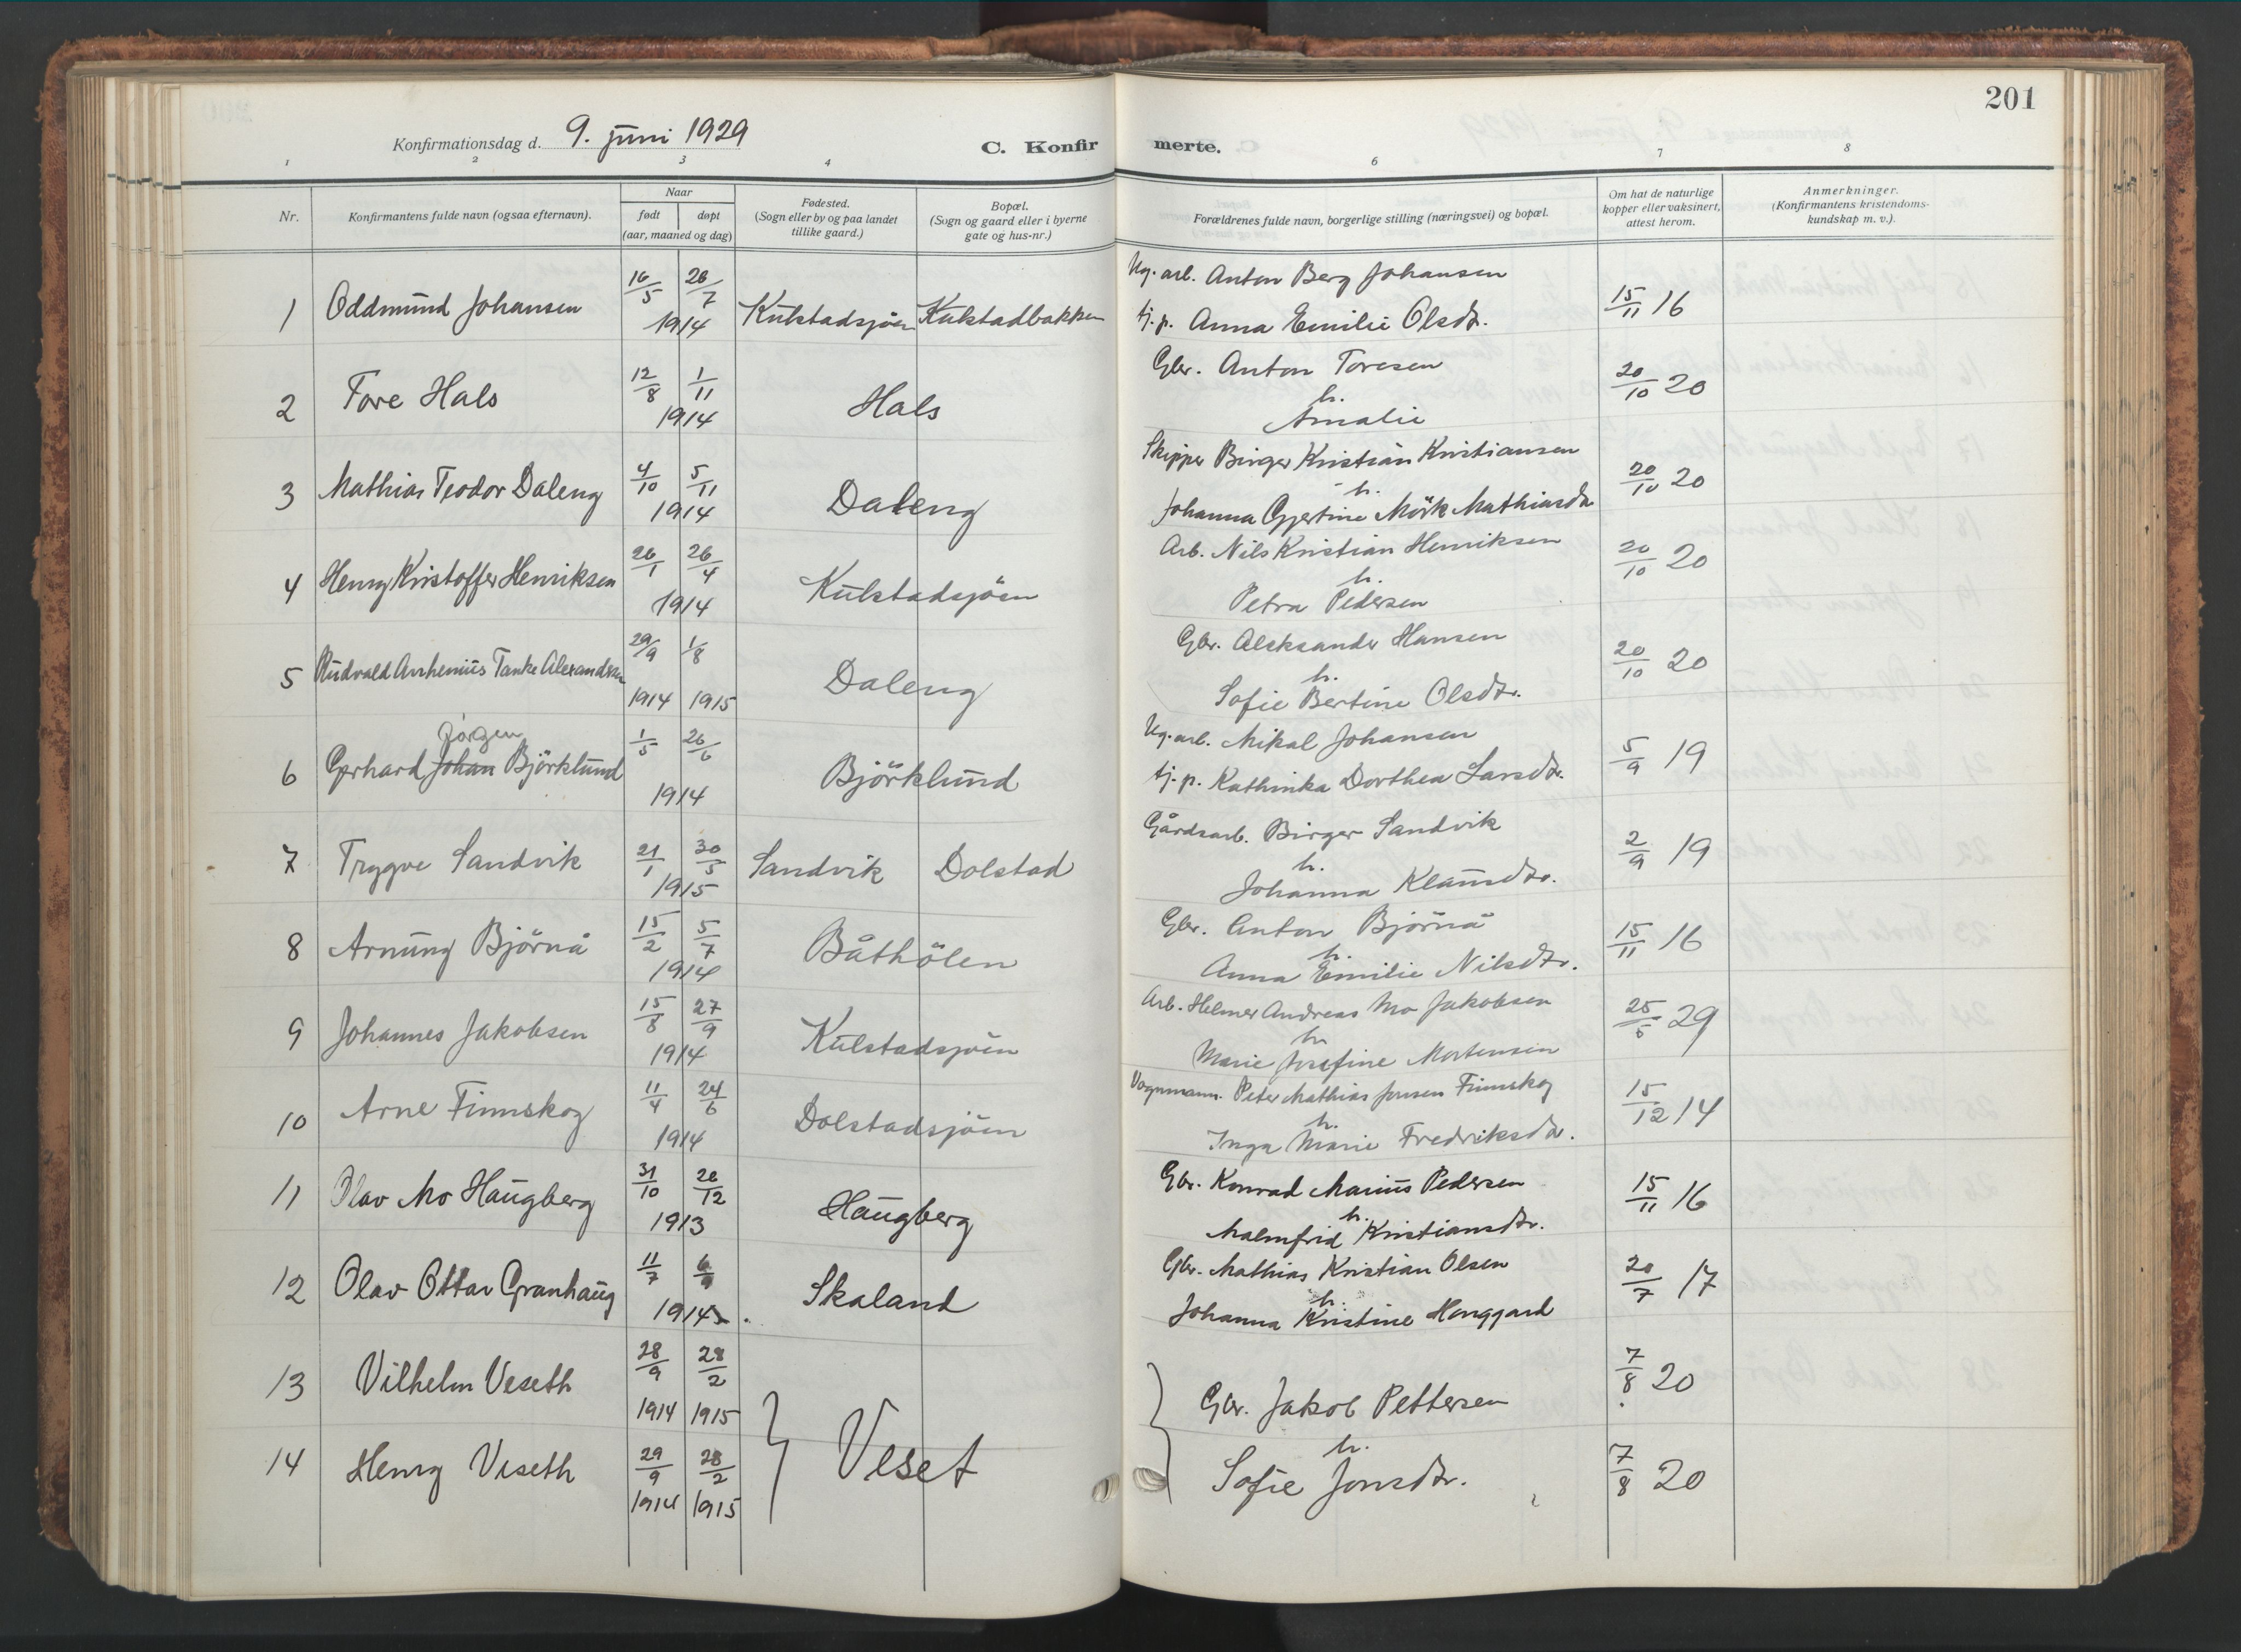 201
Konfirmationsdag d. 9. juni 1929
C. Konfirmerte.
1 2 3 4 6 7 8
Nr.
Konfirmantens fulde navn (ogsaa efternavn).
Naar
født døpt
(aar, maaned og dag)
Fødested.
(Sogn eller by og paa landet
tillike gaard.)
Bopæl.
(Sogn og gaard eller i byerne
gate og hus-nr.)
Forældrenes fulde navn, borgerlige stilling (næringsvei) og bopæl.
Om hat de naturlige
kopper eller vaksinert,
attest herom.
Anmerkninger.
(Konfirmantens kristendoms-
kundskap m. v.).
1 Oddmund Johansen 16/5 26/7 1914 Kulstadsjöen Kulstadbakken
Ug. arb. Anton Berg Johansen
tj. p. Anna Emilie Olsdtr. 15/11 16
2 Tore Hals 12/8 1/11 1914 Hals
Gbr. Anton Toresen
h.
Amalie 20/10 20
3 Mathias Teodor Daleng 4/10 5/11 1914 Daleng
Skipper Birger Kristian Kristiansen
h.
Johanna Gjertine Mörk Mathiasdtr 20/10 20
4 Henry Kristoffer Henriksen 26/1 26/4 1914 Kulstadsjöen
Arb. Nils Kristian Henriksen
h.
Petra Pedersen 20/10 20
5 Rudvald Arrhenius Tanke Alexandsen 29/9 1/8 1914 1915 Daleng
Gbr. Aleksander Hansen
h.
Sofie Bertine Olsdtr. 20/10 20
Jørgen
6 Gerhard Johan Björklund 1/5 26/6 1914 Björklund
Ug. arb. Mikal Johansen
tj. p. Kathinka Dorthea Larsdtr. 5/9 19
7 Trygve Sandvik 21/1 30/5 1915 Sandvik Dolstad
Gårdsarb. Birger Sandvik
h.
Johanna Klausdtr. 2/9 19
8 Arnung Björnå 15/2 5/7 1914 Båthölen
Gbr. Anton Björnå
h.
Anna Emilie Nilsdtr. 15/11 16
9 Johannes Jakobsen 15/8 27/9 1914 Kulstadsjöen
Arb. Helmer Andreas Mo Jakobsen
h.
Marie Josefine Mortensen 25/5 29
10 Arne Finnskog 11/4 24/6 1914 Dolstadsjöen
Vognmann. Peter Mathias Jensen Finnskog
h.
Inga Marie Fredriksdtr. 15/12 14
11 Olav Mo Haugberg 31/10 26/12 1913 Haugberg
Gbr. Konrad Marius Pedersen
h.
Malmfrid Kristiansdtr. 15/11 16
12 Olav Ottar Granhaug 11/7 6/9 1914 Skaland
Gbr. Mathias Kristian Olsen
h.
Johanna Kristine Honggard 20/7 17
13 Vilhelm Veseth 28/9 28/2 1914 1915 7/8 20
Veset
Gbr. Jakob Pettersen
h.
Sofie Jonsdtr.
14 Henry Veseth 29/9 28/2 1914 1915 7/8 20